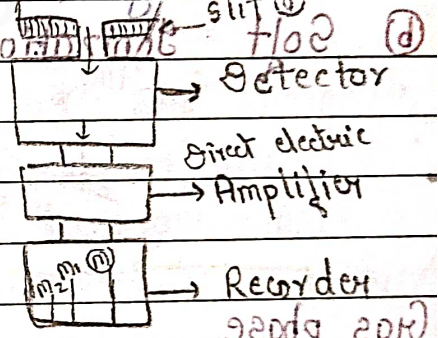 slit
Detector
Direct electric
Amplifier
m2 m1 m
Recorder